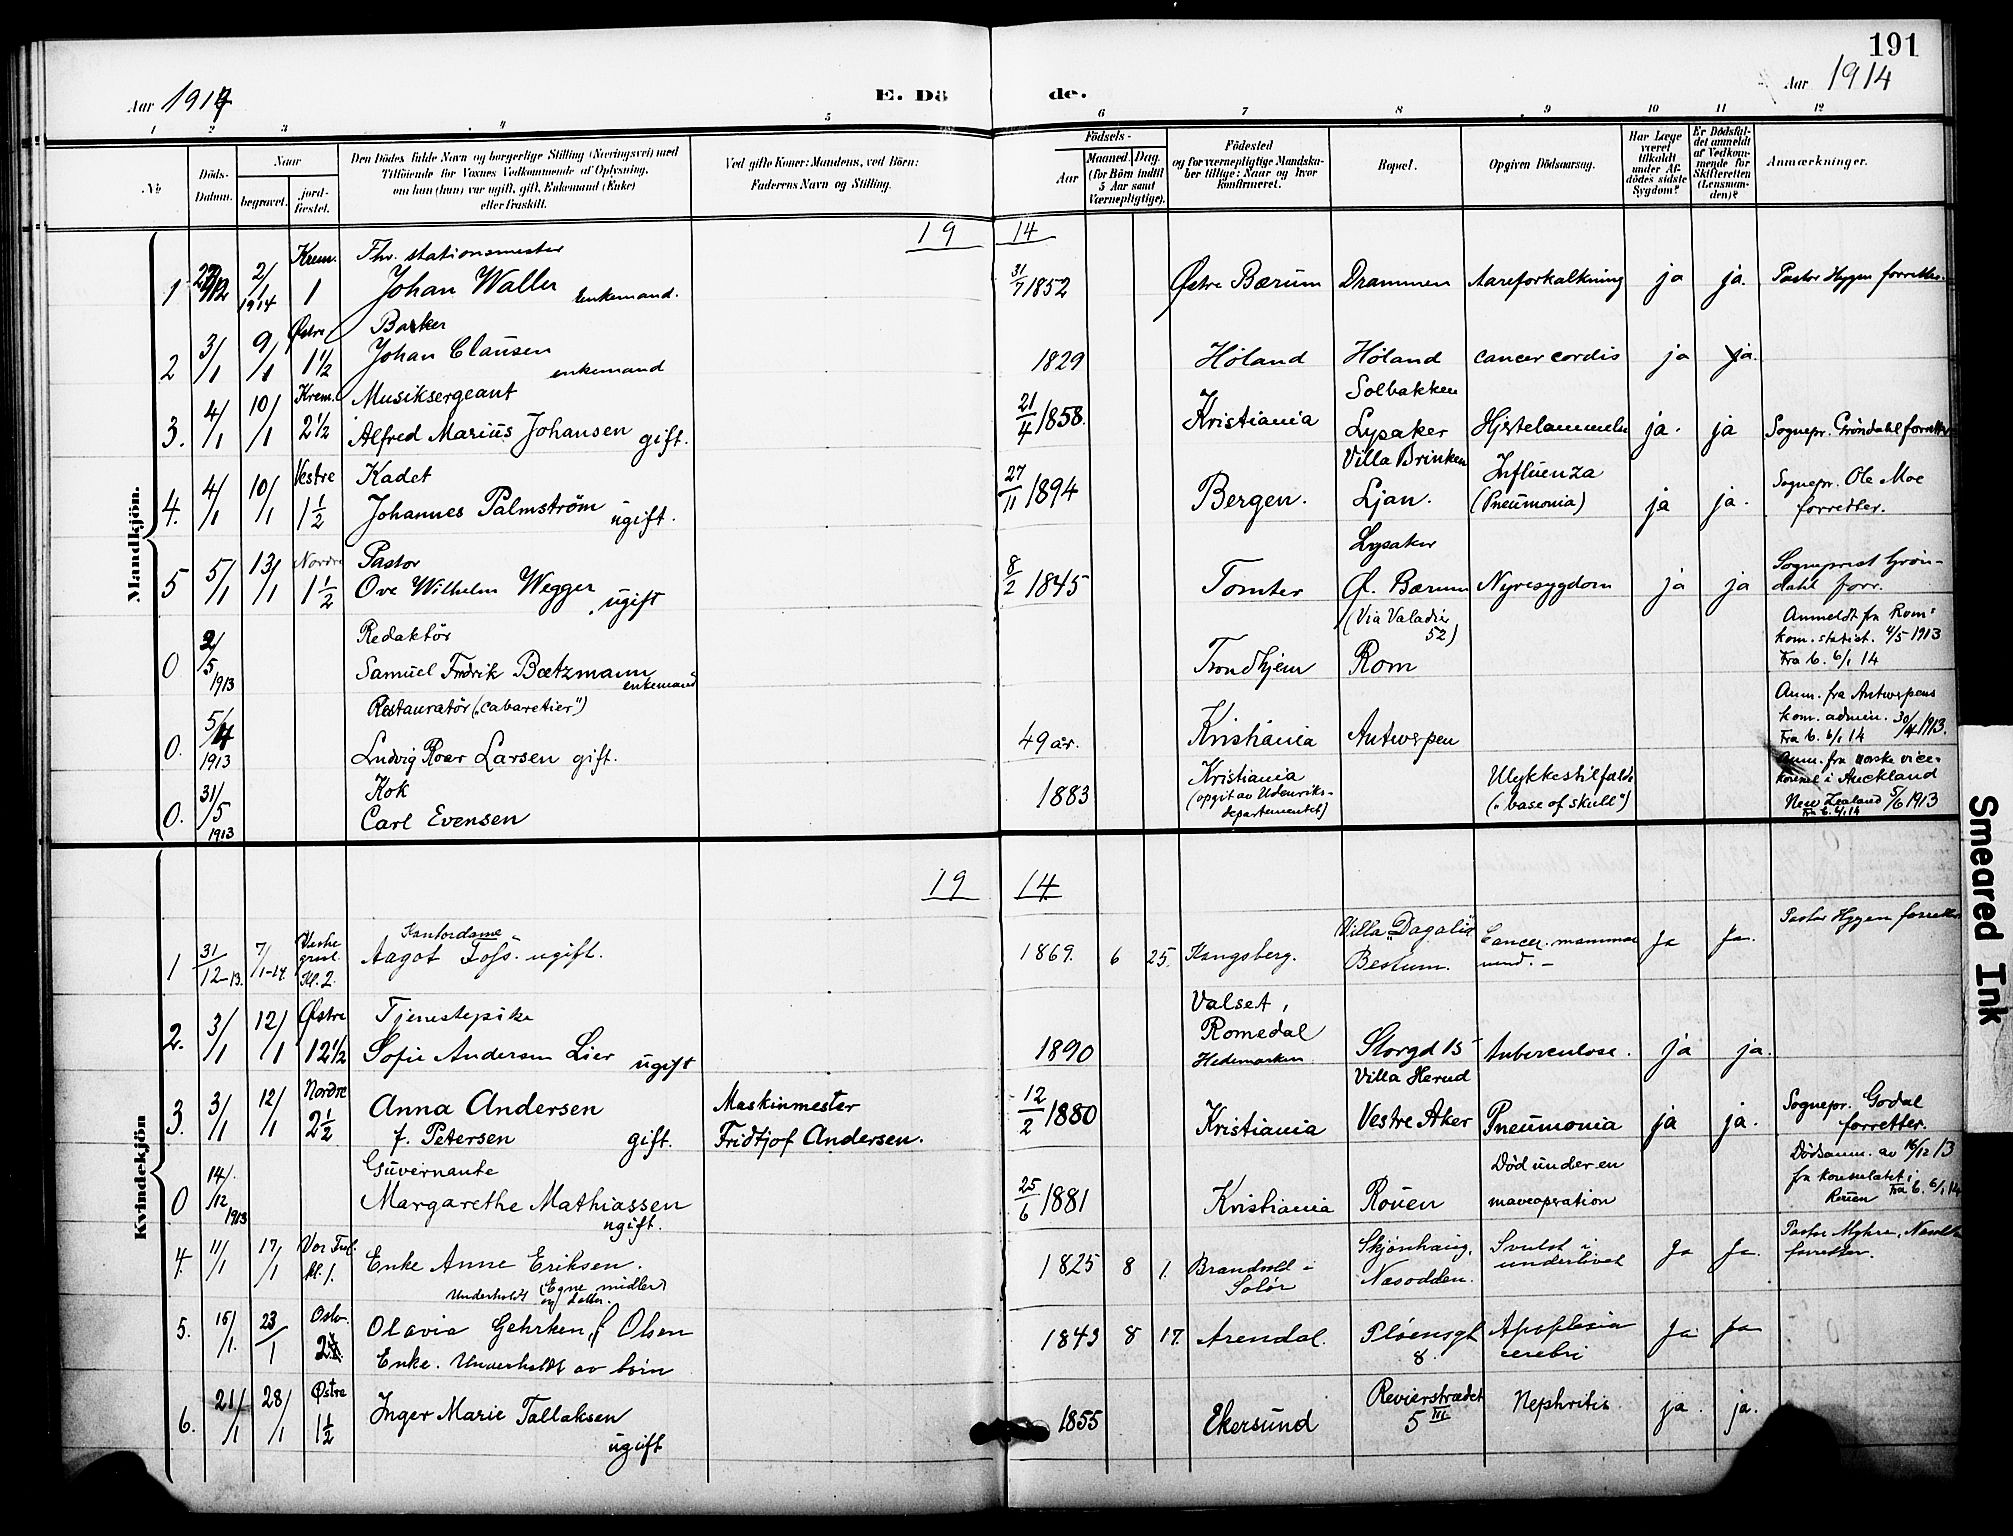 191
Aar 1914
E. Dö de.
Aar 1914
1 2 3 4 5 6 7 8 9 10 11 12
No
Döds-
Datum.
Naar
begravet.
jord-
fæstet.
Den Dödes fulde Navn og borgerlige Stilling (Næringsvei) med
Tilföiende for Voxnes Vedkommende af Oplysning,
om han (hun) var ugift, gift, Enkemand (Enke)
eller fraskilt.
Ved gifte Koner: Mandens, ved Börn:
Faderens Navn og Stilling.
Födsels-
Aar
Maaned. Dag.
(for Börn indtil
5 Aar samt
Værnepligtige).
Födested
og for værnepligtige Mandska-
ber tillige: Naar og hvor
konfirmeret.
Bopæl.
Opgiven Dödsaarsag.
Har Læge
været
tilkaldt
under Af-
dödes sidste
Sygdom?
Er Dödsfal-
det anmeldt
af Vedkom-
mende for
Skifteretten
(Lensman-
den)?
Anmærkninger.
19 14
Mandkjön.
Krem. Fhv. stationsmester
1 2/1 1914 1 Johan Waller enkemand. 31/7 1852 Østre Bærum Drammen Aareforkalkning ja ja. Pastor Hygen forretter.
Østre
2 3/1 9/1 1½ Johan Clausen enkemand 1829 Høland Høland cancer cordis ja ja.
Krem. Musiksergeant Solbakken
3. 4/1 10/1 2½ Alfred Marius Johansen gift. 21/4 1858. Kristiania Lysaker ja. ja Sognepr. Grøndahl forretter
Vestre Kadet Villa Brinken Influenza Sognepr. Ole Moe
4. 4/1 10/1 1½ Johannes Palmstrøm ugift. 27/11 1894 Bergen. Ljan. (Pneumonia) ja ja. forretter.
Nordre Pastor Lysaker Sogneprest Grøn-
5 5/1 13/1 1½ Ove Wilhelm Wegger ugift 8/2 1845 Tomter Ø. Bærum Nyresygdom ja ja dahl forr.
Redaktør (Via Valadier 52) Anmeldt fra Rom:
kom. statist. 4/5 1913
0 2/5 1913 Samuel Fredrik Bætzmann enkemand Trondhjem Rom Fra b. 6/1 14
Restauratør („cabaretier") Anm. fra Antwerpens
kom. admin. 30/4 1913.
0. 5/4 1913 Ludvig Roar Larsen gift. 49 år. Kristiania Antwerpen Fra b. 6/1 14
Kok Kristiania Ulykkestilfælde Anm. fra norske vice-
konsul i Auckland
0. 31/5 1913 Carl Evensen 1883 (opgit av Udenriks-
departementet) („base of skull") New Zealand 5/6 1913
Fra b. 6/1 14
19 14
Kvindekjön
Kontordame Villa „Dagali" Pastor Hygen forretter
1 31/12-13. 7/1-14. Kl. 2. Aagot Foss. ugift. 1869. 6 25. Kongsberg. Bestum. Cancer mammae Ja Ja.
Østre Tjenestepike Valset,
2. 3/1 12/1 12½ Sofie Andersen Lier ugift 1890 Romedal
Hedemarken Storgd 15 Tuberculose. ja ja.
Nordre Villa Herud Sognepr. Godal
3. 3/1 12/1 2½ Anna Andersen Maskinmester 12/2 1880 Kristiania Vestre Aker Pneumonia ja ja. forretter.
f. Petersen gift. Fridtjof Andersen.
Guvernante Død under en Dødsanm. av 16/12 13
0 14/12 1913 Margarethe Mathiassen 25/6 1881 Kristiania Rouen maveoperation fra konsulatet i
ugift. Rouen Fra b. 6/1 14
4. 11/1 17/1 Kl. 1. Enke Anne Eriksen. 1825 8 1. Brandvold i
Solør Skjønhaug,
Nesodden. Svulst i
underlivet Ja Ja. Pastor Myhre,
forretter.
Underholdt (Egne midler
og datter.
Oslo.
5. 15/1. 23/1 2 Olavia Gehrken, f Olsen 1843 8 17. Arendal. Pløensgt
8. Apoplexia
cerebri Ja Ja
Enke. Underholdt av børn
Østre Revierstrædet
6. 21/1 28/1 1½ Inger Marie Tallaksen 1855 Ekersund 5 III. Nephritis ja. ja.
ugift
Smeared Ink